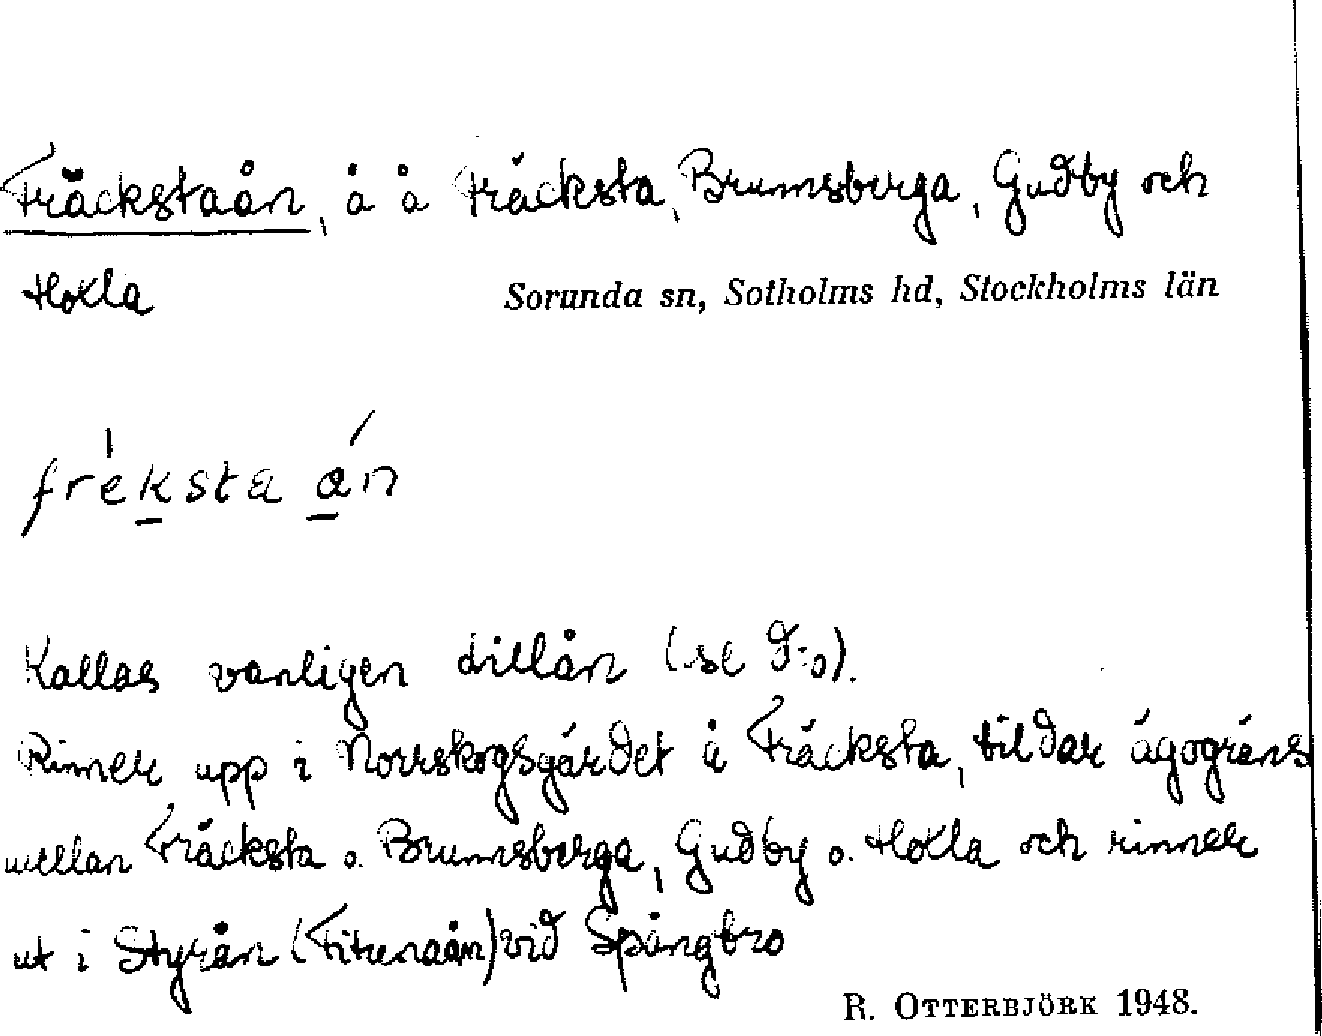 Fräckstaån, å å Fräcksta, Brumsberga, Gudby och
Hoxla
Sorunda sn, Sotholms hd, Stockholms län
frèksta án
Kallas vanligen Lillån (se d:o).
Rinner upp i Norrskogsgärdet å Fräcksta, bildar ägogräns
mellan Fräcksta o. Brumsberga, Gudby o. Hoxla och rinner
ut i Styrån (Fitunaån) vid Spångbro
R. OTTERBJÖRK 1948.